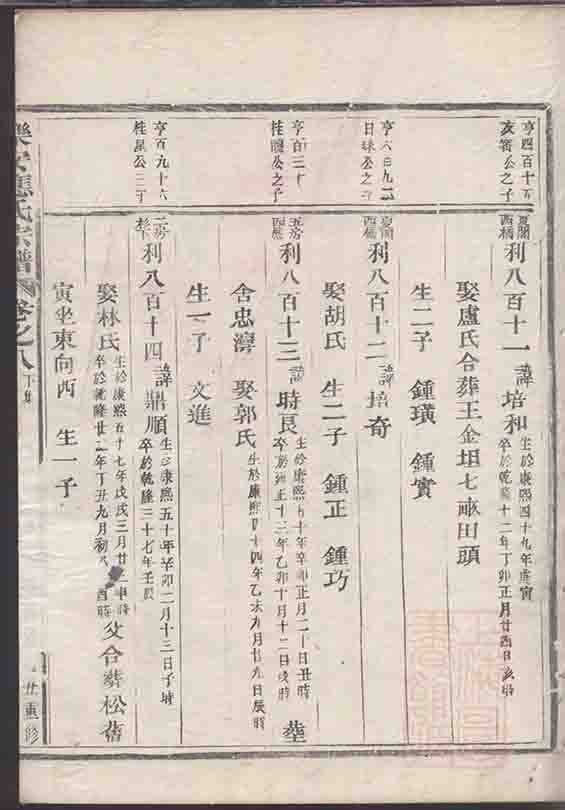 亨四百十五
亥 公之子
西橋
利八百十一 諱培和
生於康熙四十九年庚寅
卒於乾隆十二年丁卯正月廿四日亥時
娶盧氏合葬王金坦七畝田頭
生二子 鍾璜 鍾實
亨六百九
日 公之子
西橋
利八百十二 諱培奇
娶胡氏 生二子 鍾正 鍾巧
亨百三十
桂 公之子
利八百十三 諱時良
生於康熙五十年辛卯正月二十日丑時
卒於雍正十三年乙卯十月十二日戌時
葬
舍忠灣 娶郭氏
生於康熙五十四年乙未九月廿九日辰時
生一子 文進
亨百九十六
桂星公三子
利八百十四 諱鼎順
生於康熙五十年辛卯二月十三日子時
卒於乾隆三十七年壬辰
娶林氏
生於康熙五十七年戊戌三月廿二申時
卒於乾隆廿二年丁丑九月初 酉時
父合葬松
寅坐東向西 生一子
樂安 氏宗譜 卷之八 下集
重修